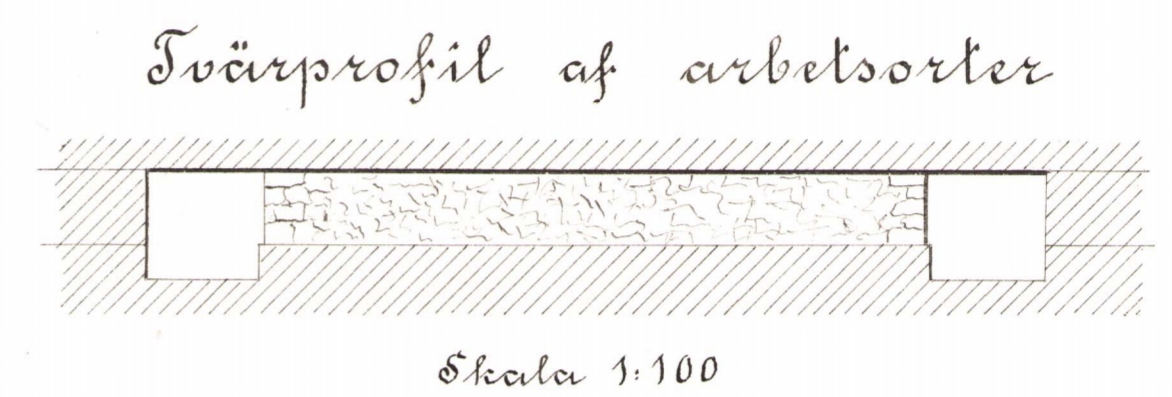 Tvärprofil af arbetsorter
Skala 1:100